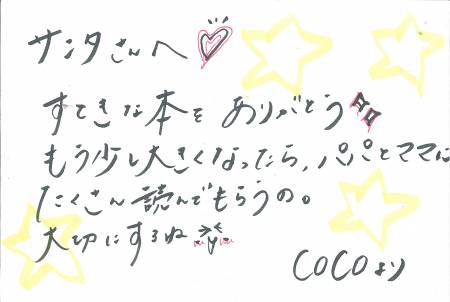 サンタさんへ
すてきな本をありがとう
もう少し大きくなったら，パパとママに
たくさん読んでもらうの。
大切にするね
COCOより